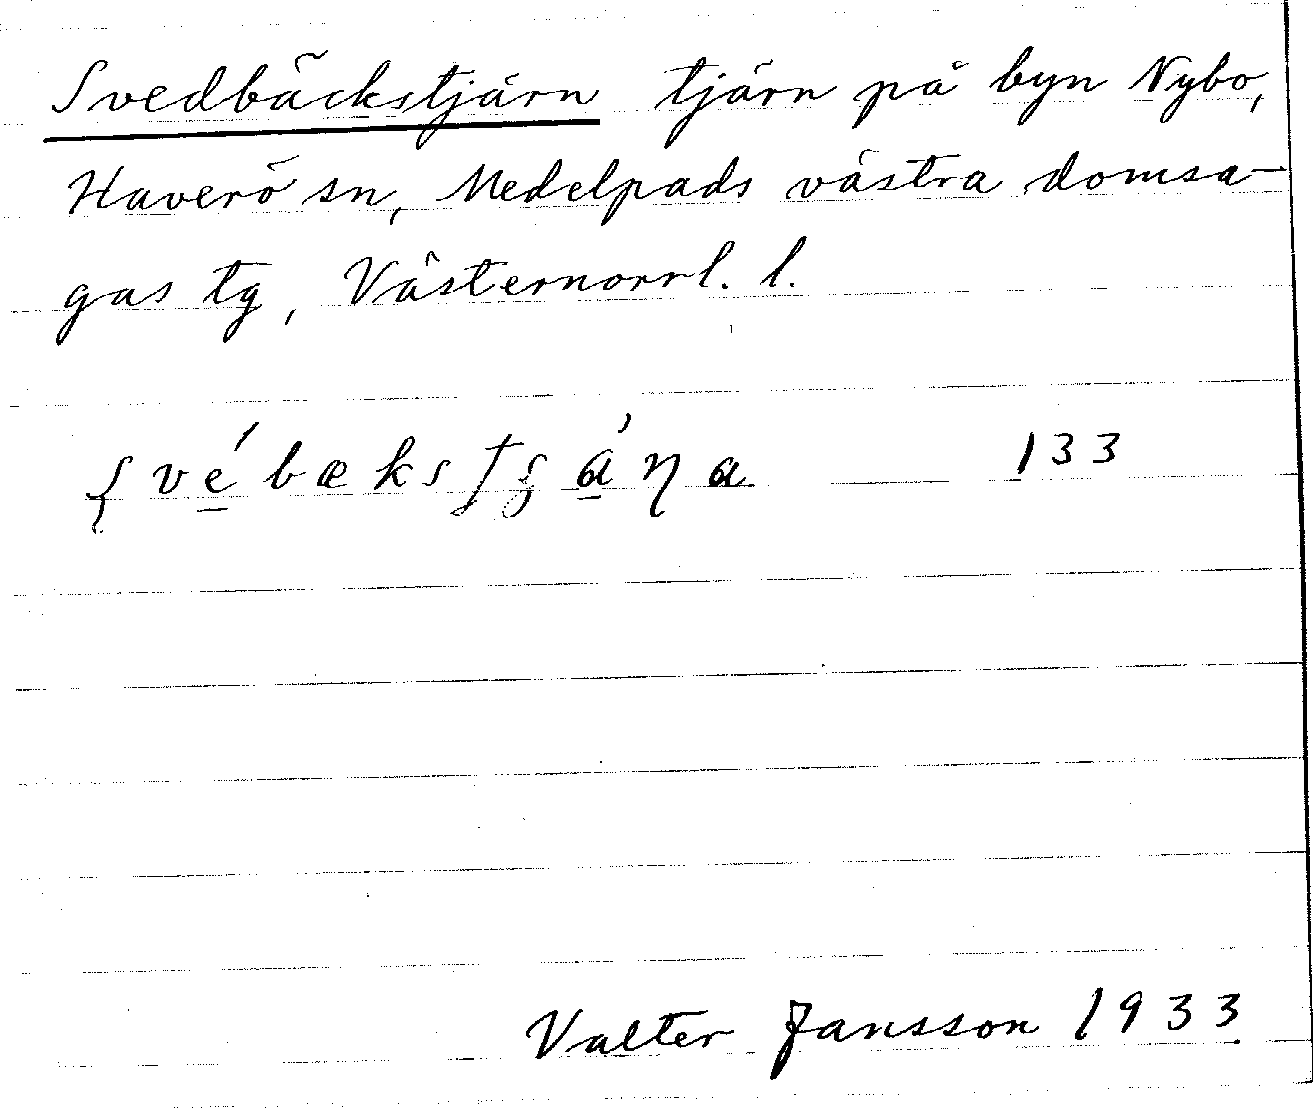 Svedbäckstjärn tjärn på byn Nybo,
Haverö sn, Medelpads västra domsa-
gas tg, Västernorrl. l.
133
Valter Jansson 1933